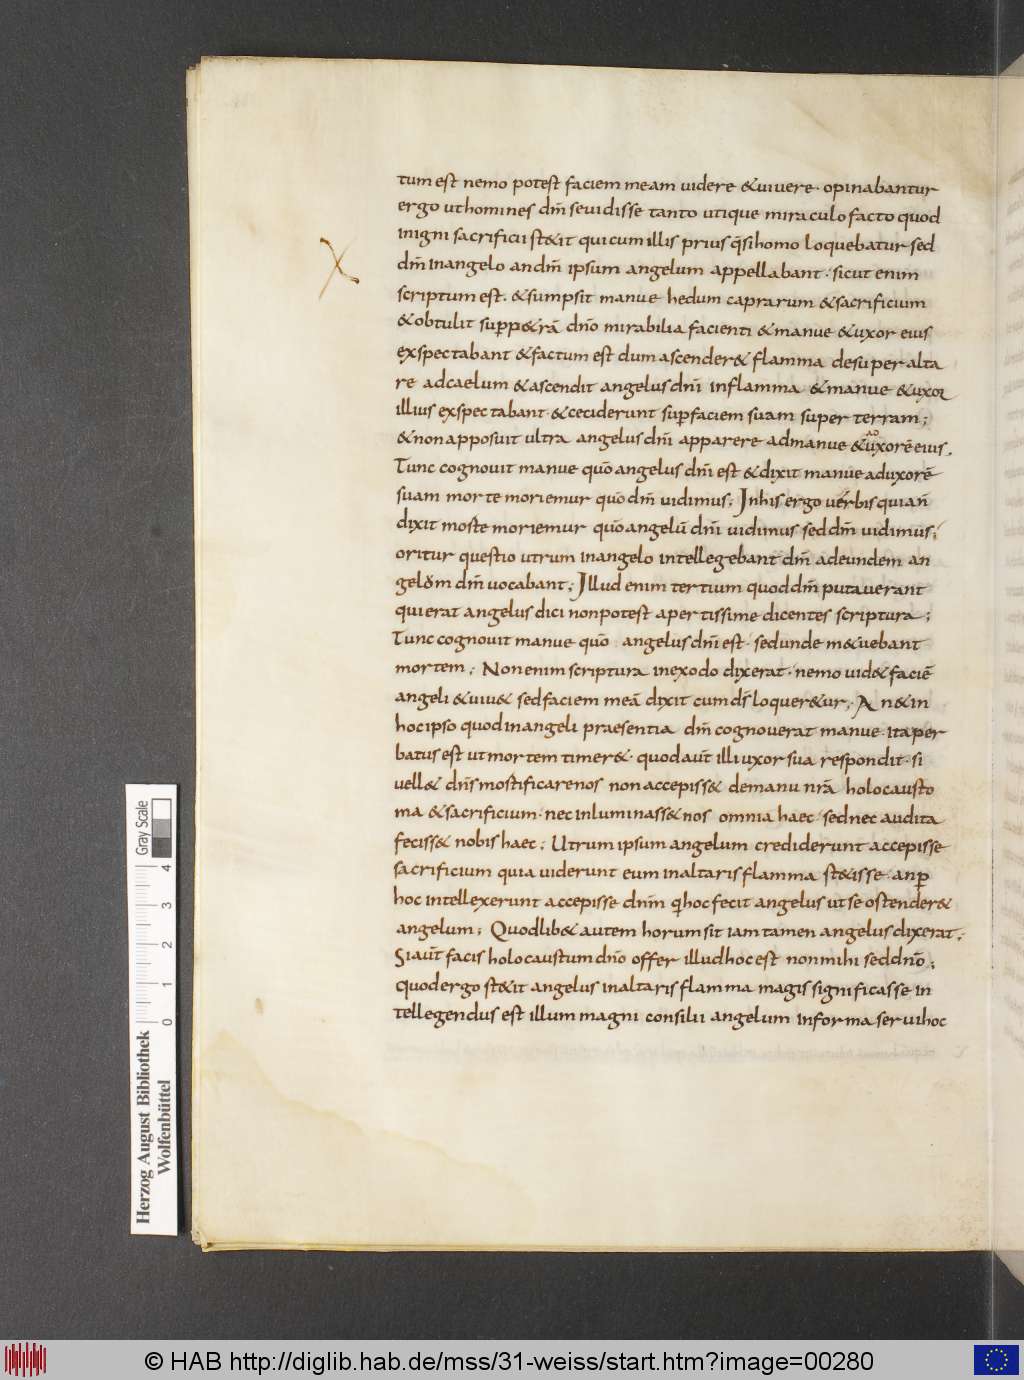 tum est nemo potest faciem meam videre & vivere · opinabantur
ergo ut homines dm̄ se vidisse tanto utique miraculo facto quod
in igni sacrificii st&it qui cum illis prius q̄si homo loquebatur sed
dm̄ in angelo an dm̄ ipsum angelum appellabant · sicut enim
scriptum est · & sumpsit manue hedum caprarum & sacrificium
& obtulit sup p&rā dn̄o mirabilia facienti & manue & uxor eius
exspectabant & factum est dum ascender& flamma desuper alta
re ad caelum & ascendit angelus dn̄i in flamma & manue & uxor
illius exspectabant · & ceciderunt sup faciem suam super terram ;
& non apposuit ultra angelus dn̄i apparere ad manue & ad uxorē eius .
Tunc cognovit manue qūo angelus dn̄i est & dixit manue ad uxorē
suam morte moriemur qūo dm̄ vidimus ; In his ergo verbis quia n̄
dixit morte moriemur qūo angelū dn̄i vidimus sed dm̄ vidimus ;
oritur questio utrum in angelo intellegebant dm̄ an eundem an
gelum dm̄ vocabant ; Illud enim tertium quod dm̄ putaverant
qui erat angelus dici non potest apertissime dicentes scriptura ;
Tunc cognovit manue qūo angelus dn̄i est · sed unde m&uebant
mortem ; Non enim scriptura in exodo dixerat · nemo vid& faciē
angeli & viv& sed faciem meā dixit cum ds̄ loquer&ur ; An & in
hoc ipso quod in angeli praesentia dm̄ cognoverat manue · ita per
batus est ut mortem timer& · quod aut̄ illi uxor sua respondit · si
vell& dn̄s mortificare nos non accepiss& de manu nr̄a holocausto
ma & sacrificium · nec inluminass& nos omnia haec · sed nec audita
feciss& nobis haec ; Utrum ipsum angelum crediderunt accepisse
sacrificium quia viderunt eum in altaris flamma st&isse · an p̱
hoc intellexerunt accepisse dn̄m q̱ hoc fecit angelus ut se ostender&
angelum ; Quodlib& autem horum sit iam tamen angelus dixerat ;
Si aut̄ facis holocaustum dn̄o offer illud hoc est non mihi sed dn̄o ;
quod ergo st&it angelus in altaris flamma magis significasse in
tellegendus est illum magni consilii angelum in forma servi hoc
Herzog August Bibliothek
Wolfenbüttel
0 1 2 3 4 Gray Scale
© HAB http://diglib.hab.de/mss/31-weiss/start.htm?image=00280